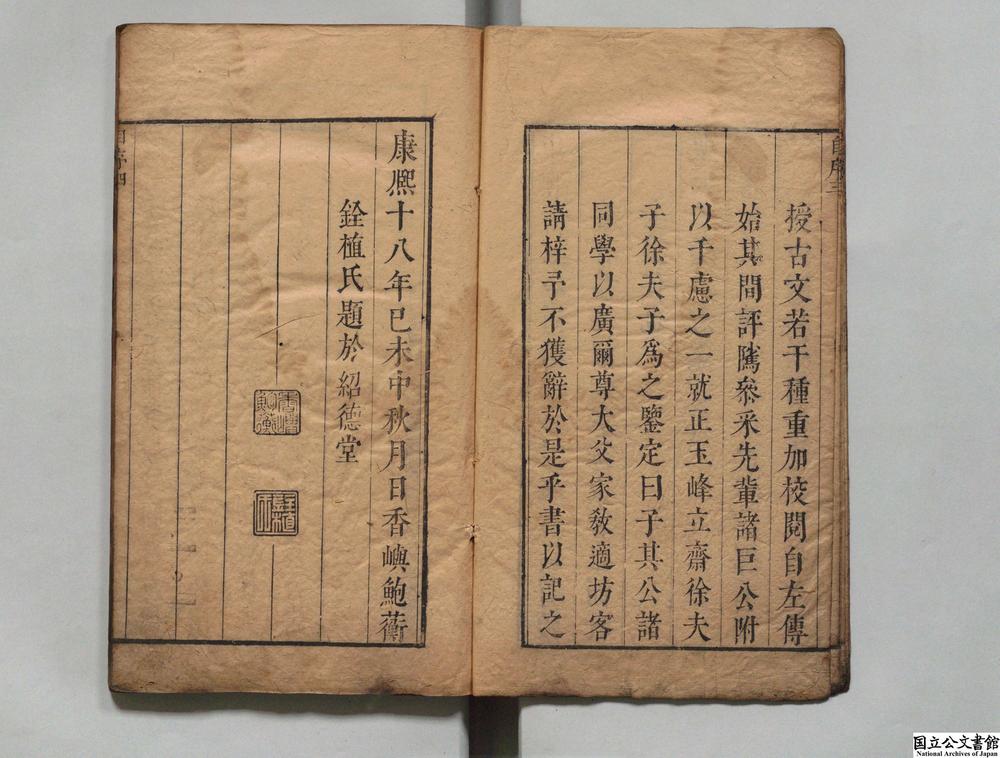 自序三
授古文若干種重加校閱自左傳
始其間評隲參采先輩諸巨公附
以千慮之一就正玉峰立齋徐夫
子徐夫子爲之鑒定曰子其公諸
同學以廣爾尊大父家敎適坊客
請梓予不獲辭於是乎書以記之
康熙十八年己未中秋月日香嶼鮑蘅
銓植氏題於紹德堂
自序四
国立公文書館
National Archives of Japan